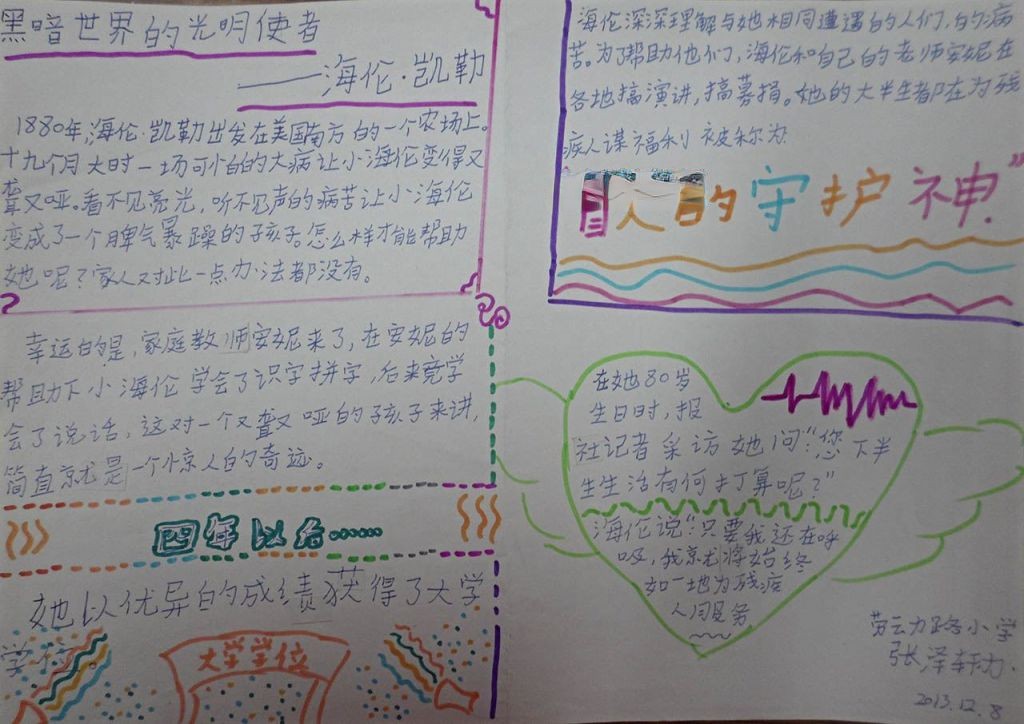 黑暗世界的光明使者
——海伦·凯勒
1880年,海伦·凯勒出发在美国南方的一个农场上。
十九个月大时一场可怕的大病让小海伦变得又
聋又哑。看不见亮光,听不见声的病苦让小海伦
变成了一个脾气暴躁的孩子。怎么样才能帮助
她呢?家人对此一点办法都没有。
幸运的是,家庭教师安妮来了,在安妮的
帮助下小海伦学会了识字拼字,后来竟学
会了说话,这对一个又聋又哑的孩子来讲,
简直就是一个惊人的奇迹。
四年以后……
她以优异的成绩获得了大学
学位。
大学学位
海伦深深理解与她相同遭遇的人们,的病
苦。为了帮助他们,海伦和自己的老师安妮在
各地搞演讲,搞募捐。她的大半生都在为残
疾人谋福利被称为
人的守护神"
在她80岁
生日时,报
社记者采访她问"您下半
生生活有何打算呢?"
海伦说"只要我还在呼
吸,我就将始终
如一地为残疾
人服务
劳动路小学
张泽轩
2013.12.8